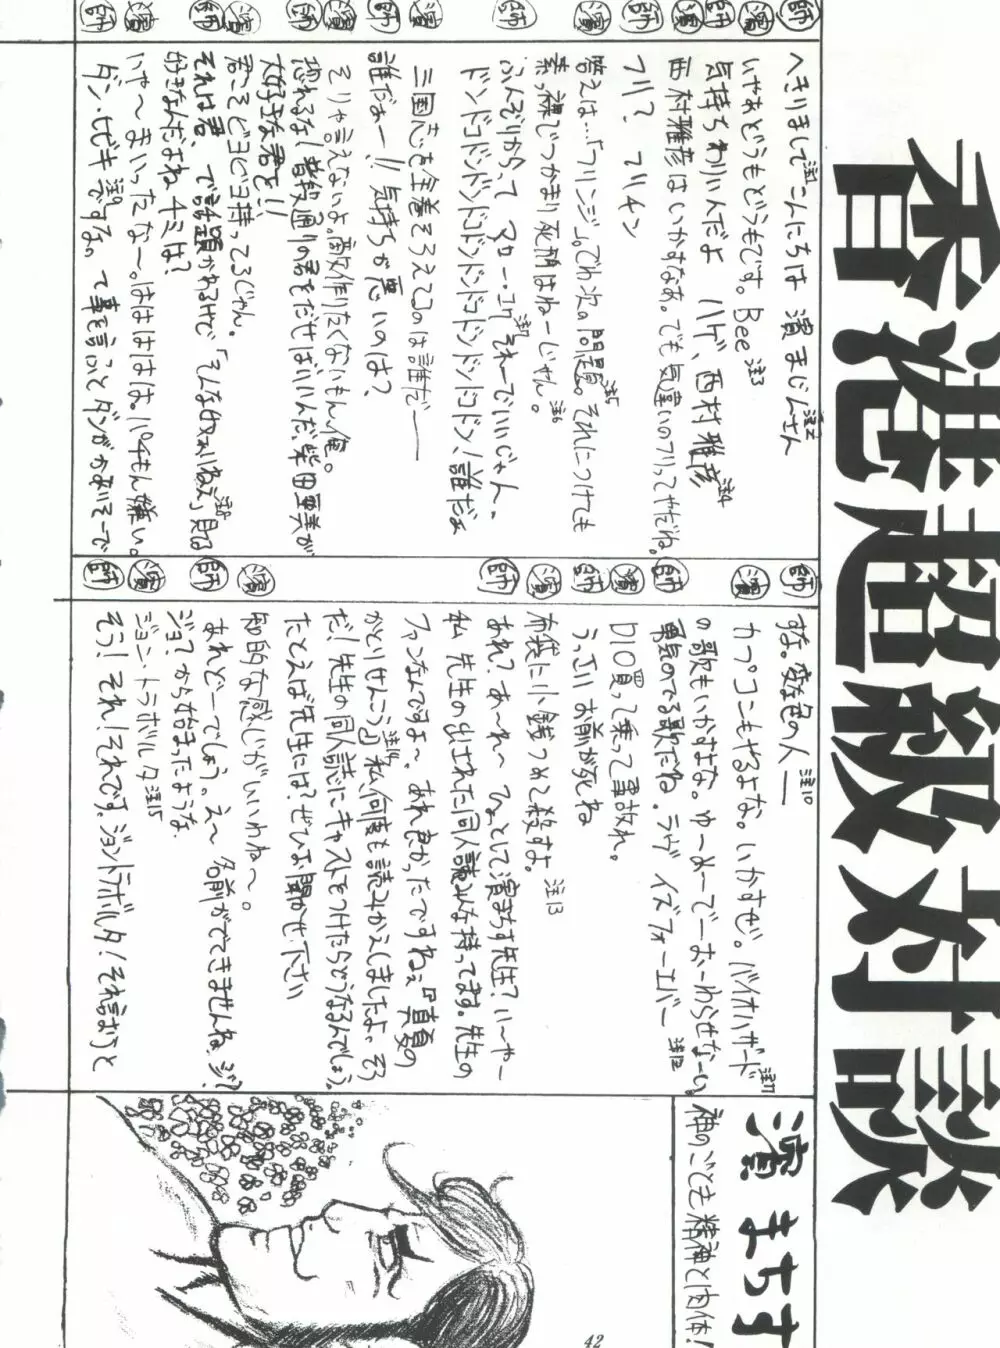 香港超級対談
師 へきりまして注1こんにちは 濱まじんさん注2
濱 いやあどうもどうもです。Bee注3
師 気持ちわりいんだよ ハゲ、西村雅彦注4
濱 西村雅彦はいかすなあ。でも気違いのフリってやだね。
師 フリ? でリチン
濱 答えは…「フリンジ」。でわ次の問題。注5それにつけても
素っ裸でつかまり死刑はねーじゃん。注6
師 ふんぞりかって マロー・コク注7それーでいいじゃん
ドンドコドンドンドコドンドンドコドンドンドコドン!誰だよ
濱 三国志を全巻そろえてるのは誰だ——
師 誰だぁー!!気持ちが悪いのは?
濱 そりゃ言えないよ。敵作りたくないもん俺。
師 恐れるな!普段通りの君をだせばいいんだ、柴田亜美が
大好きな君を!!
濱 君こそビヨビヨ持ってるじゃん。
師 それは君、で話題かわるけで「そんな奴ぁいねえ」注8見る
好きなんだよね チミは?
濱 いや〜まいったな〜。はははははは。パチもん嫌い。
師 ダン・ヒビキ注9ですな。って事を言ふとダンがかわいそーで
師 すな。変な色の人—注10
濱 カプコンもやるよな。いかすぜ。バイオハザード注11
の歌もいかすよな。ゆーめーでーおーわらせなーい
師 勇気のでる歌だね。ラヴ イズ フォーエバー注12
濱 DIO買って乗って事故れ。
師 うっさい お前が死ね
濱 布袋に小銭つめて殺すよ。注13
師 あれ?あ〜れ〜 ひょっとして濱まちす先生?い〜や〜
私、先生の出された同人誌みんな持ってます。先生の
ファンなんですよ〜、あれ良かったですねえ『真夏の
かとりせんこう』注14私何度も読みかえしましたよ。そう
だ!先生の同人誌にキャストをつけたらどうなるんでしょう。
たとえば先生には?ぜひお聞かせ下さい
濱 知的な感じがいいわね〜。
師 あれどーでしょう。え〜 名前がでてきませんね、ジ?
ジョ?から始まったような
濱 ジョン・トラボルタ注15
師 そう!それ!それです。ジョントラボルタ!それ言おうと
濱まちす
神のごとき精神と肉体!
42